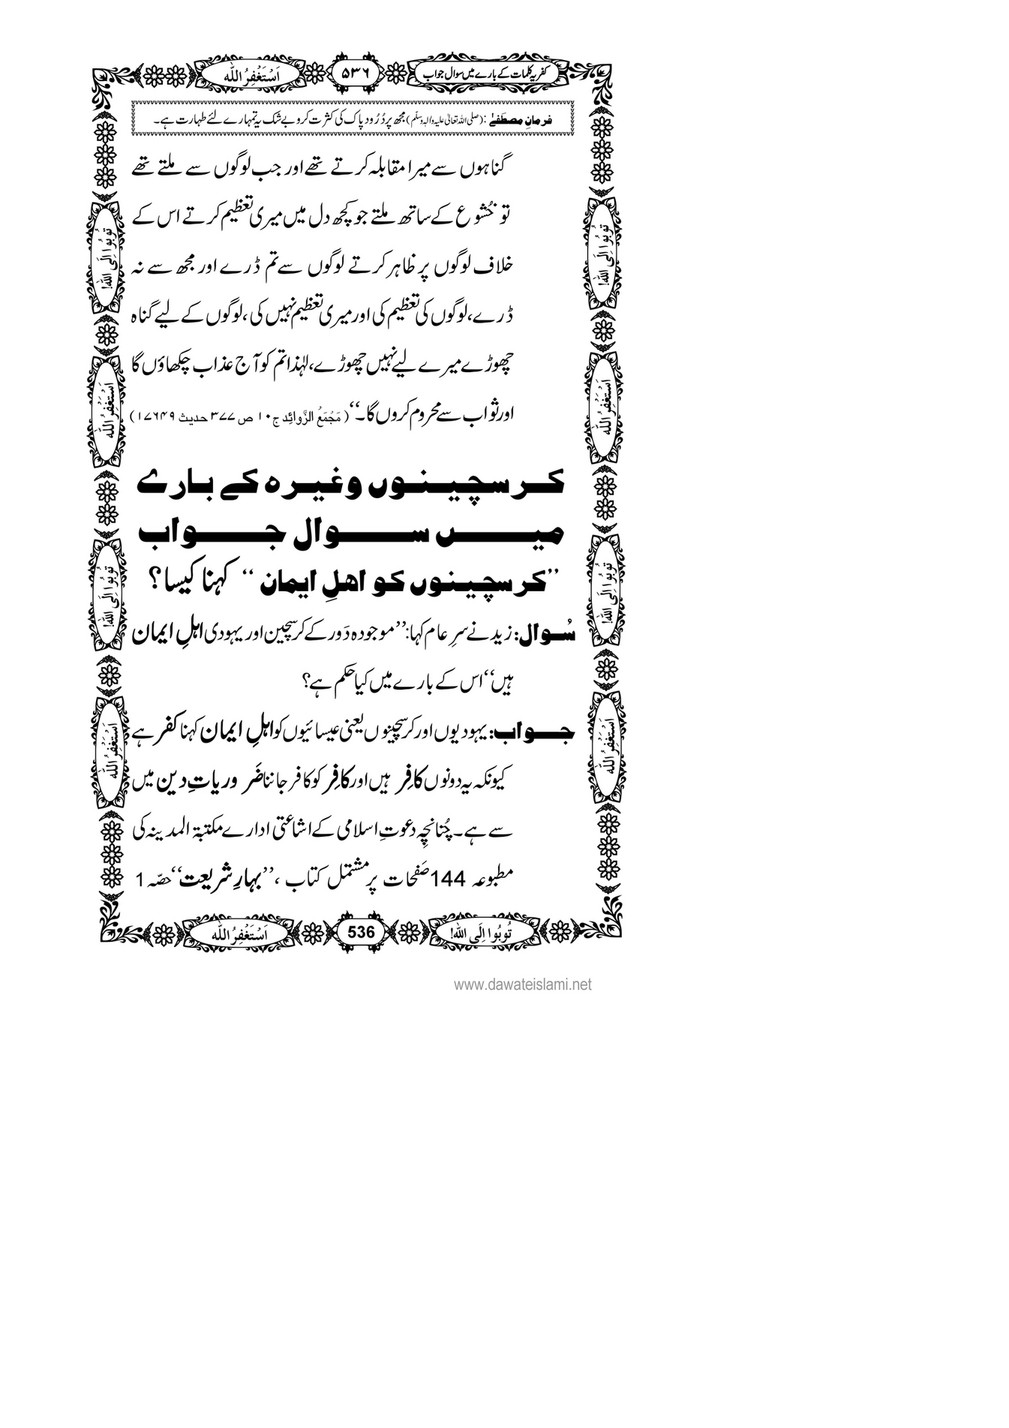 کفریہ کلمات کے بارے میں سوال جواب
۵۳۶
اَسْتَغْفِرُ اللّٰه
فرمانِ مصطفےٰ : (صلی اللہ تعالیٰ علیہ والہٖ وسلّم) مجھ پر دُرُودِ پاک کی کثرت کرو بے شک یہ تمہارے لئے طہارت ہے۔
گناہوں سے میرا مقابلہ کرتے تھے اور جب لوگوں سے ملتے تھے
تو خُشوع کے ساتھ ملتے جو کچھ دل میں میری تعظیم کرتے اس کے
خلاف لوگوں پر ظاہر کرتے لوگوں سے تم ڈرے اور مجھ سے نہ
ڈرے، لوگوں کی تعظیم کی اور میری تعظیم نہیں کی، لوگوں کے لیے گناہ
چھوڑے میرے لیے نہیں چھوڑے، لہٰذا تم کو آج عذاب چکھاؤں گا
اور ثواب سے محروم کروں گا۔‘‘ (مَجْمَعُ الزَّوائِد ج۱۰ ص ۳۷۷ حدیث ۱۷۶۴۹)
کرسچینوں وغیرہ کے بارے
میں سوال جواب
’’کرسچینوں کو اھلِ ایمان‘‘ کہنا کیسا؟
سُوال: زید نے سرِ عام کہا: ’’موجودہ دَور کے کرسچین اور یہودی اہلِ ایمان
ہیں‘‘ اس کے بارے میں کیا حکم ہے؟
جواب: یہودیوں اور کرسچینوں یعنی عیسائیوں کو اہلِ ایمان کہنا کفر ہے
کیونکہ یہ دونوں کافِر ہیں اور کافِر کو کافر جاننا ضَروریاتِ دین میں
سے ہے۔ چُنانچِہ دعوتِ اسلامی کے اشاعَتی ادارے مکتبۃ المدینہ کی
مطبوعہ 144 صَفحات پر مشتمل کتاب، ’’بہارِ شریعت‘‘ حصّہ 1
تُوبُوا اِلَی اللّٰه!
536
اَسْتَغْفِرُ اللّٰه
تُوبُوا اِلَی اللّٰه!
اَسْتَغْفِرُ اللّٰه
تُوبُوا اِلَی اللّٰه!
اَسْتَغْفِرُ اللّٰه
تُوبُوا اِلَی اللّٰه!
اَسْتَغْفِرُ اللّٰه
تُوبُوا اِلَی اللّٰه!
اَسْتَغْفِرُ اللّٰه
www.dawateislami.net